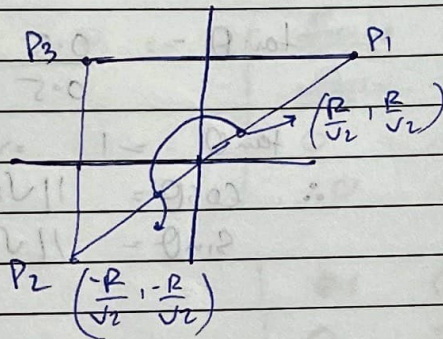 P3
P1
(R/√2, R/√2)
P2
(-R/√2, -R/√2)